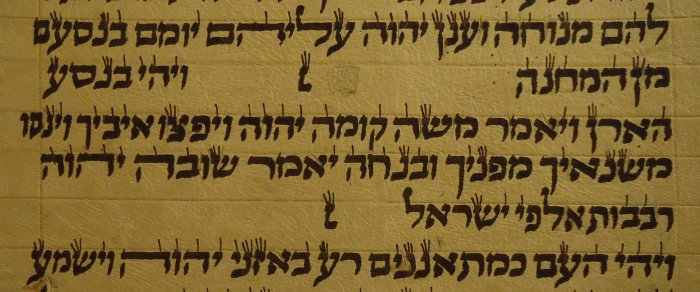 להם מנוחה וענן יהוה עליהם יומם בנסעם
מן המחנה ׆ ויהי בנסע
הארן ויאמר משה קומה יהוה ויפצו איביך וינסו
משנאיך מפניך ובנחה יאמר שובה יהוה
רבבות אלפי ישראל ׆
ויהי העם כמתאננים רע באזני יהוה וישמע